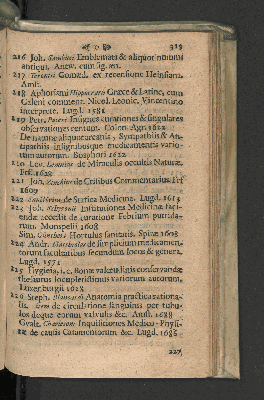 216 Joh. Sambuci Emblemata & aliquot nummi
antiqui. Antw. cum fig.
217 Terentii Comœd. ex recensione Heinsiana.
Amst.
218 Aphorismi Hippocratis Græce & Latine, cum
Galeni comment. Nicol. Leonic. Vincentino
interprete. Lugd. 1581
219 Petr. Insignes curationes & singulares
observationes centum. Colon. Agri 1622
De natura aliquot arcanis, Sympathiis & An-
tipathiis insignibusque medicamentis vario-
rum autorum. 1612
220 Lev. Lemnius de Miraculis occultis Naturæ.
Frf. 1628
221 Joh. de Crisibus Commentarius. Frf
1609
222 Sanctorius de Statica Medicina. Lugd. 1613
223 Joh. Institutiones Medicinæ faci-
endæ accessit de curatione Febrium putrida-
rum. Monspelii 1608
Sim. Hortulus sanitatis. Spiræ 1608
224 Andr. de simplicium medicamen-
torum facultatibus secundum locos & genera.
Lugd. 1571
225 Hygieia, i. e. Bonæ valetudinis conservandæ
thesaurus locupletissimus variorum autorum.
Luxemburgii 1628
226 Steph. Blancardi Anatomia practica rationa-
lis, item de circulatione sanguinis per tubu-
los deque eorum valvulis &c. Amst. 1688
Gualt. Charleton Inquisitiones Medico-Physi-
cæ de causis Catamentorum &c. Lugd. 1686
227